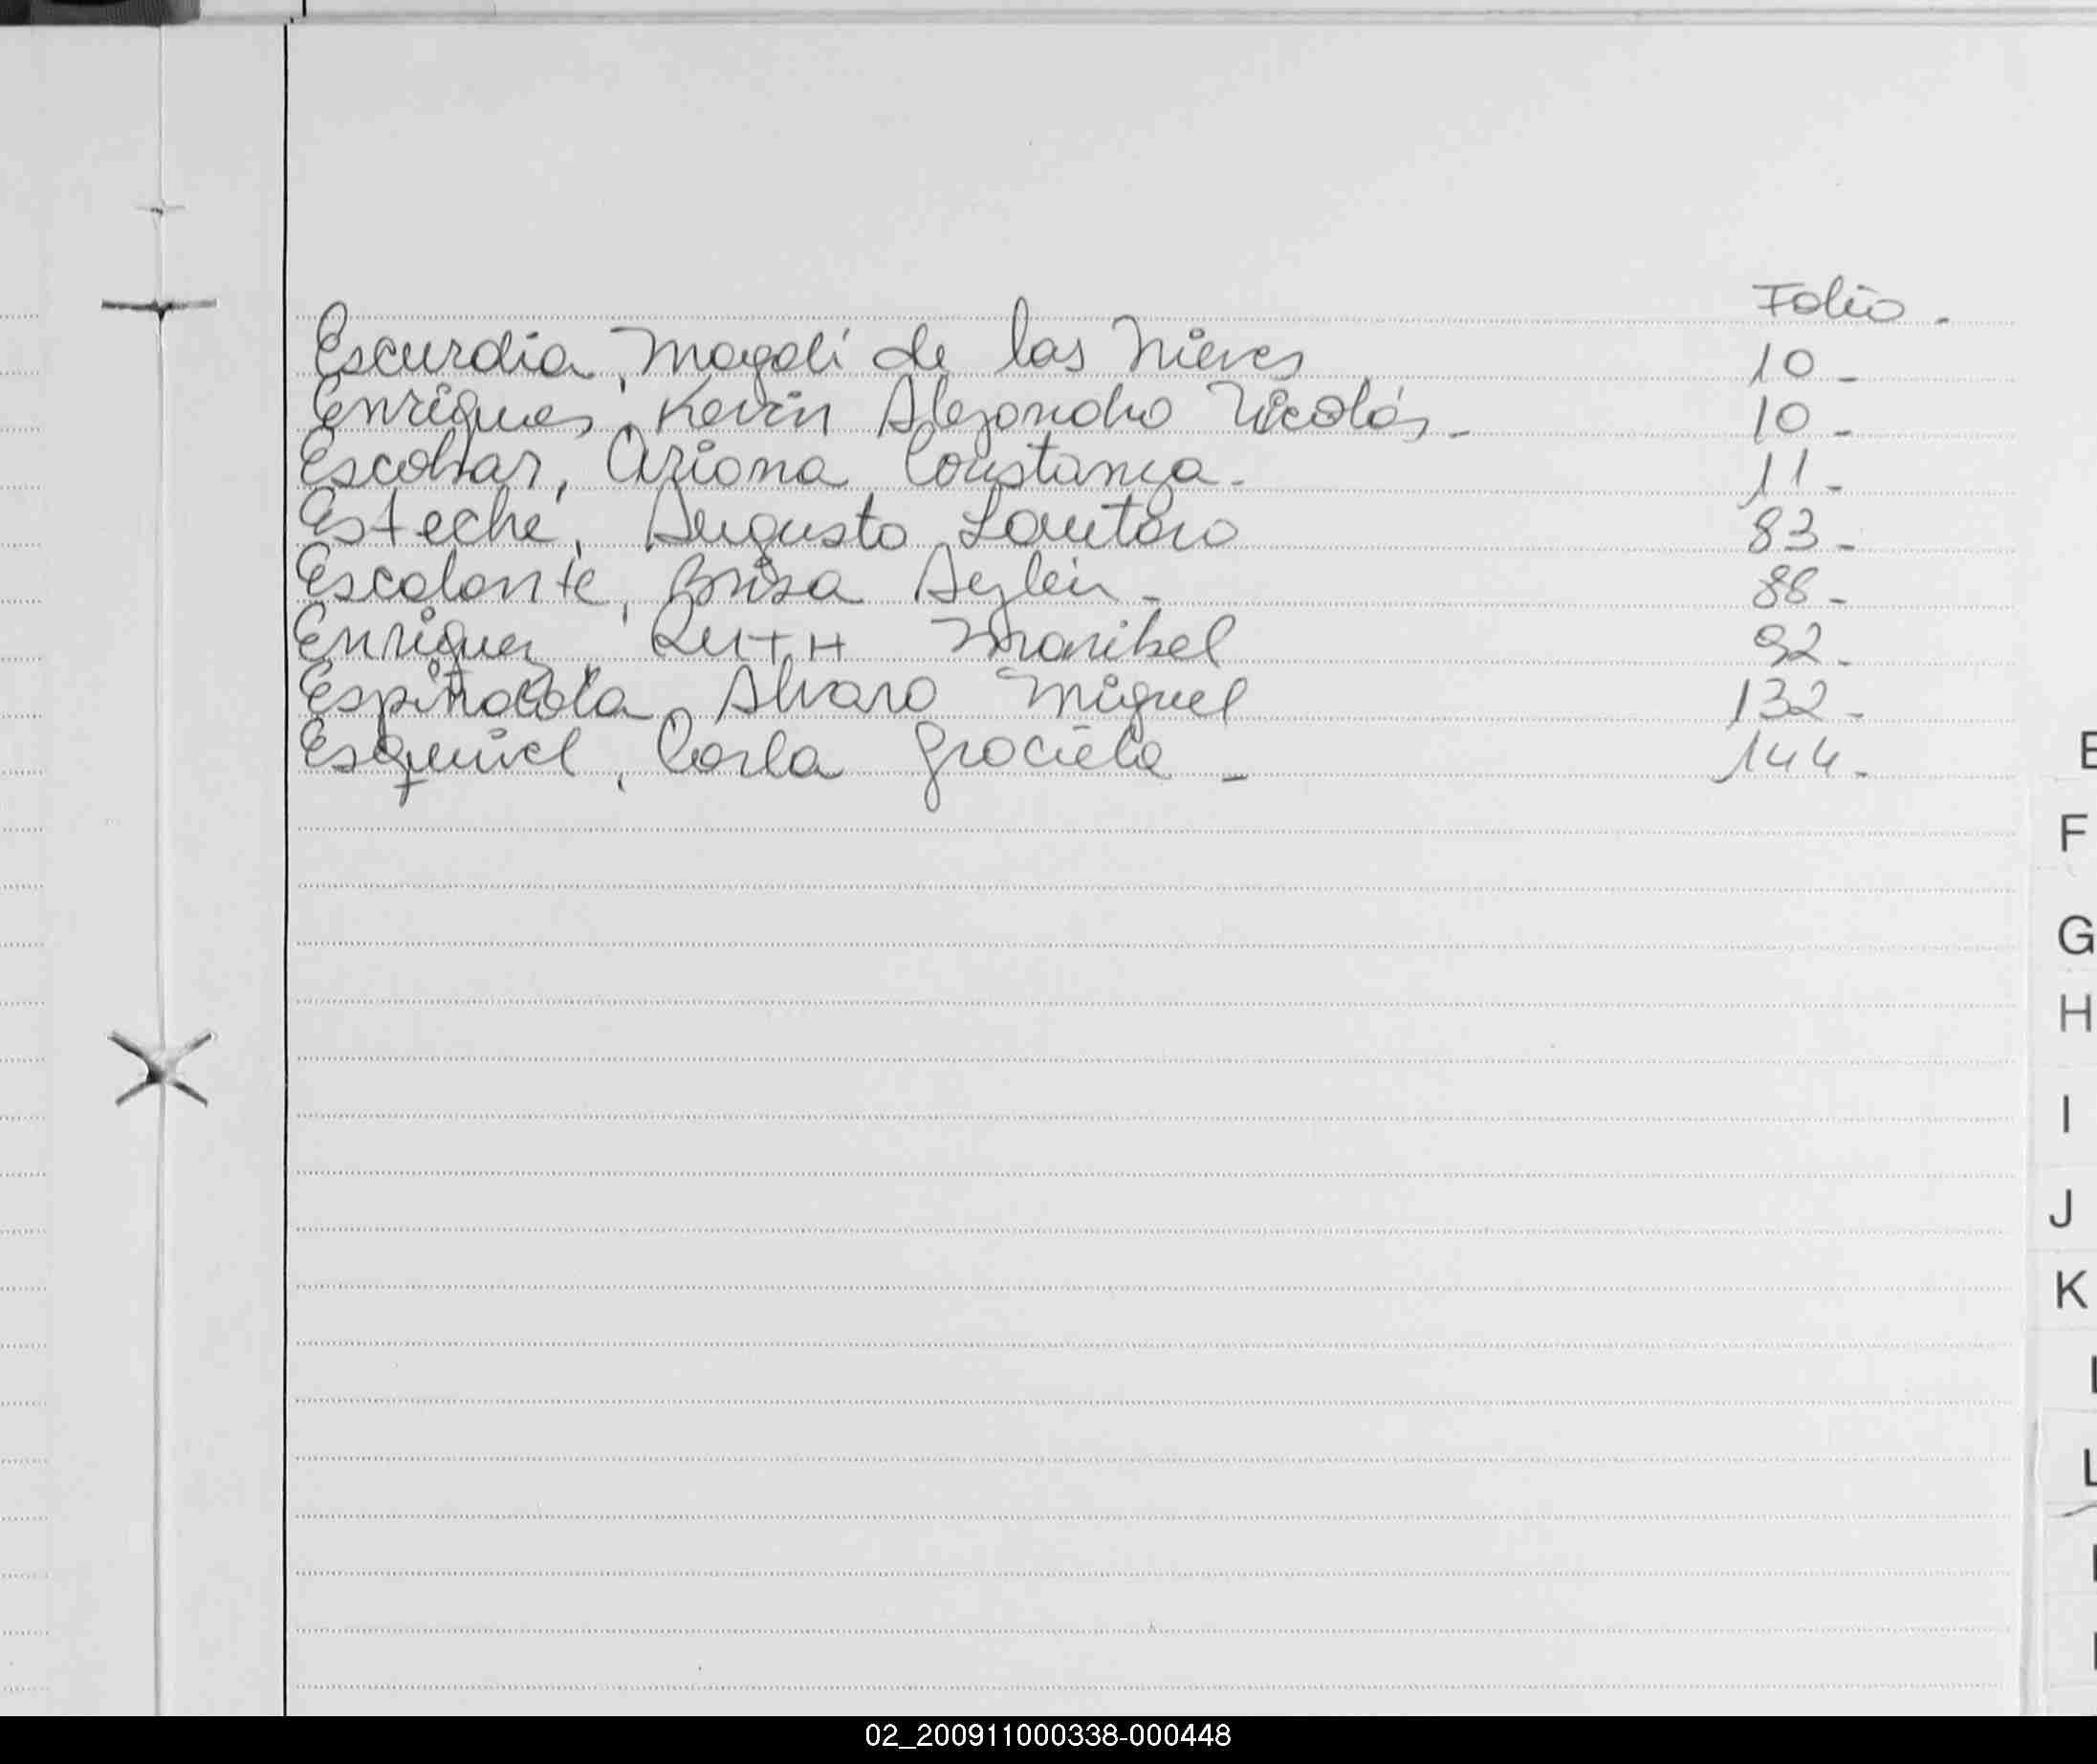 Folio.
Escurdia, Magali de las Nieves 10-
Enriques, Kevin Alejandro Nicolás- 10-
Escobar, Ariana Constanza- 11-
Esteche, Augusto Lautaro 83-
Escalante, Brisa Aylein- 88-
Enriquez, RutH Maribel 92-
Espindola, Alvaro Miguel 132-
Esquivel, Carla Graciela- 144-
E
F
G
H
I
J
K
L
L
02_200911000338-000448